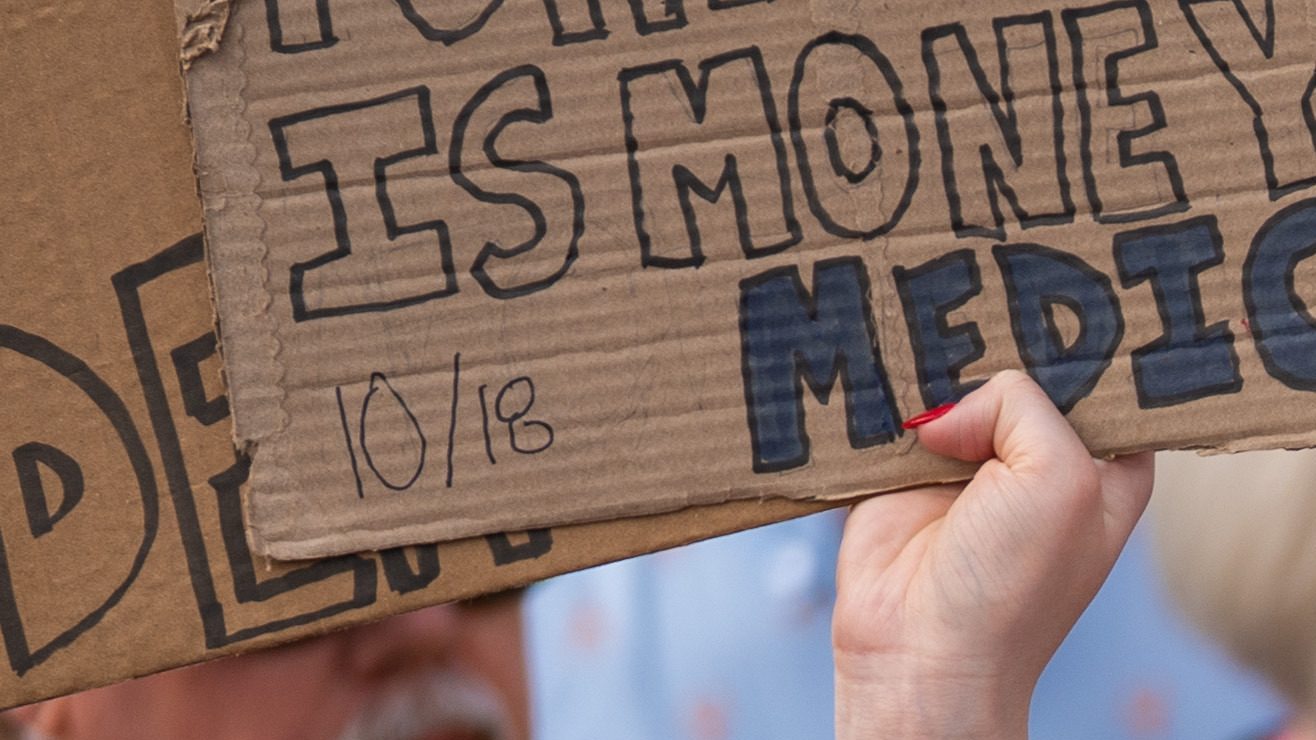 IS MONEY
MEDIC
10/18
DE